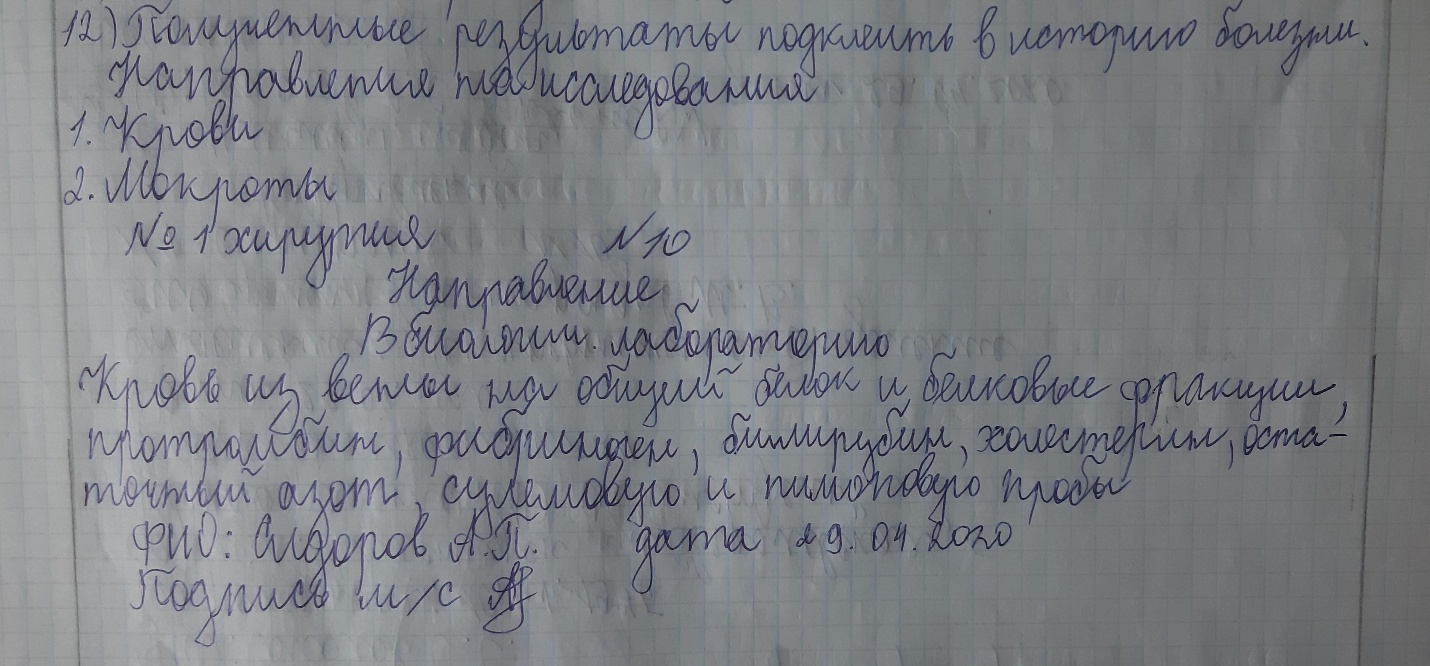 12) Полученные результаты подклеить в историю болезни.
Направления на исследования
1. Крови
2. Мокроты
№ 1 хирургия N 10
Направление
В биологич. лабораторию
Кровь из вены на общий белок и белковые фракции,
протромбин, фибриноген, билирубин, холестерин, оста-
точный азот, сулемовую и тимоловую пробы
ФИО: Сидоров А.П. дата 29.04.2020
Подпись м/с